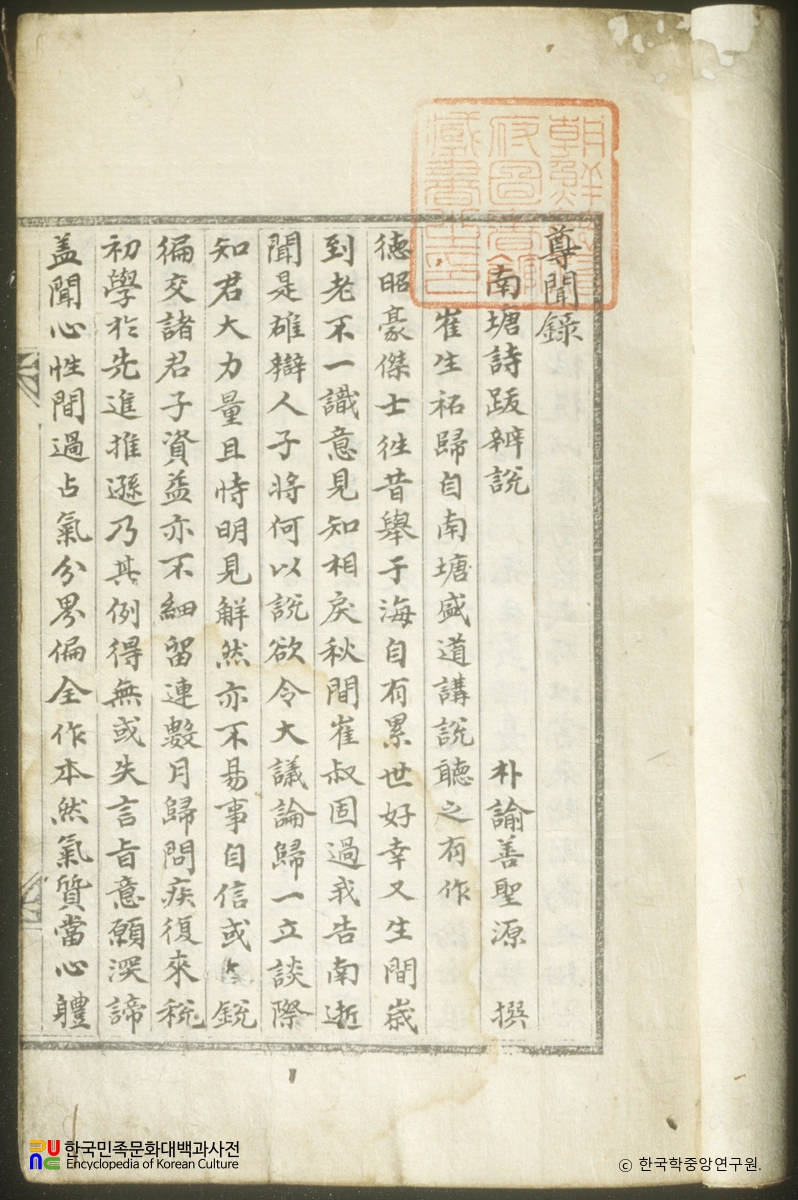 尊聞錄
南塘詩跋辨說 朴諭善聖源 撰
崔生祏歸自南塘盛道講說聽之有作
德昭豪傑士徃昔舉于海自有累世好幸又生間歲
到老不一識意見知相戾秋間崔叔固過我告南逝
聞是雄辯人子將何以說欲令大議論歸一立談際
知君大力量且恃明見解然亦不易事自信或銳
徧交諸君子資益亦不細留連數月歸問疾復來稅
初學於先進推遜乃其例得無或失言旨意願深諦
盖聞心性間過占氣分界偏全作本然氣質當心軆
朝鮮總督府圖書館藏書之印
한국민족문화대백과사전
Encyclopedia of Korean Culture
© 한국학중앙연구원.